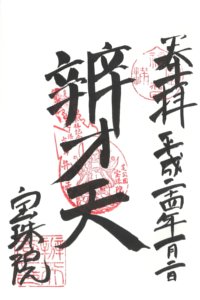 奉拝
平成二十四年一月二日
辨才天
宝珠院